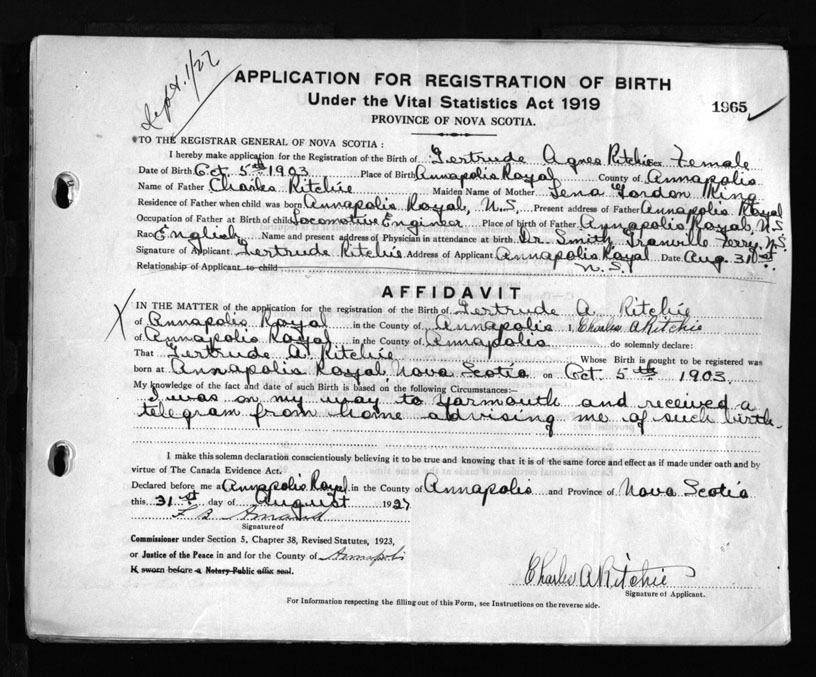 Sept. 1/27
APPLICATION FOR REGISTRATION OF BIRTH
Under the Vital Statistics Act 1919
1965
PROVINCE OF NOVA SCOTIA.
TO THE REGISTRAR GENERAL OF NOVA SCOTIA:
I hereby make application for the Registration of the Birth of Gertrude Agnes Ritchie Sex Female
Date of Birth Oct. 5th 1903 Place of Birth Annapolis Royal County of Annapolis
Name of Father Charles Ritchie Maiden Name of Mother Lena Gordon
Residence of Father when child was born Annapolis Royal, N.S. Present address of Father Annapolis Royal
Occupation of Father at Birth of child Locomotive Engineer Place of birth of Father Annapolis Royal, N.S.
Race English Name and present address of Physician in attendance at birth Dr. Smith, Granville Ferry, N.S.
Signature of Applicant Gertrude Ritchie Address of Applicant Annapolis Royal Date Aug. 31st.
Relationship of Applicant to child N.S.
AFFIDAVIT
IN THE MATTER of the application for the registration of the Birth of Gertrude A. Ritchie
of Annapolis Royal in the County of Annapolis I, Charles A Ritchie
of Annapolis Royal in the County of Annapolis do solemnly declare:
That Gertrude A. Ritchie Whose Birth is sought to be registered was
born at Annapolis Royal, Nova Scotia on Oct. 5th 1903.
My knowledge of the fact and date of such Birth is based on the following Circumstances:—
I was on my way to Yarmouth and received a
telegram from home advising me of such birth.
I make this solemn declaration conscientiously believing it to be true and knowing that it is of the same force and effect as if made under oath and by
virtue of The Canada Evidence Act.
Declared before me at Annapolis Royal in the County of Annapolis and Province of Nova Scotia
this 31st day of August 1927
Signature of
Commissioner under Section 5, Chapter 38, Revised Statutes, 1923,
or Justice of the Peace in and for the County of Annapolis
If sworn before a Notary Public affix seal.
Charles A Ritchie
Signature of Applicant.
For Information respecting the filling out of this Form, see Instructions on the reverse side.